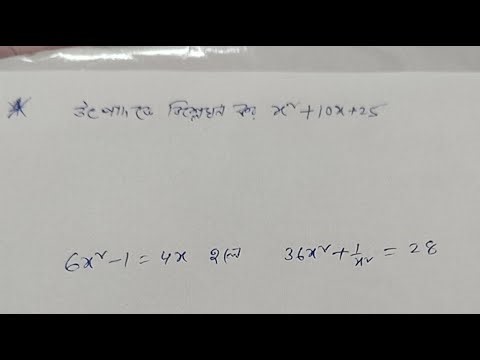 * উৎপাদকে বিশ্লেষন কর x² + 10x + 25
6x² - 1 = 4x হলে 36x² + 1/x² = 28